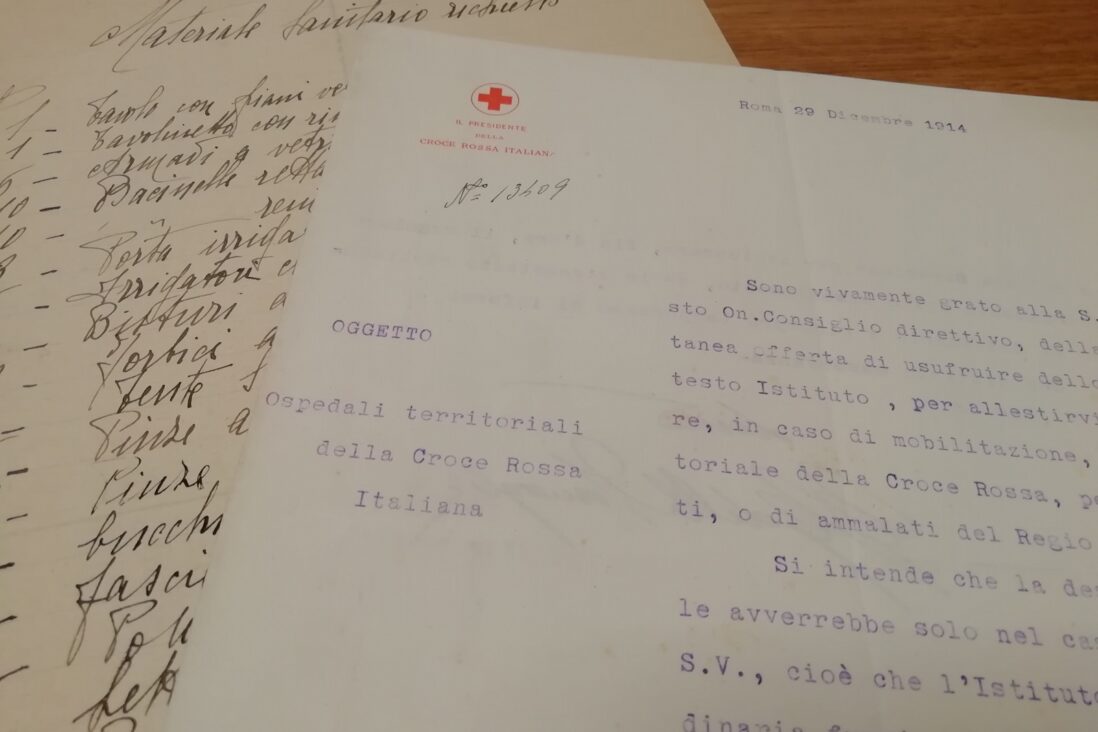 Materiale Sanitario richiesto
1 - Tavolo con piani ve
1 - Tavolinetto con ri
Armadi a vetr
10 - Bacinelle retta
reni
Porta irriga
Irrigatori
Bisturi a
Forbici a
Pinze a
Pinze
IL PRESIDENTE
DELLA
CROCE ROSSA ITALIAN
Nº 13409
Roma 29 Dicembre 1914
OGGETTO
Ospedali territoriali
della Croce Rossa
Italiana
Sono vivamente grato alla S.
sto On.Consiglio direttivo, della
tanea offerta di usufruire dello
testo Istituto , per allestirvi
re, in caso di mobilitazione,
toriale della Croce Rossa, pe
ti, o di ammalati del Regio
Si intende che la des
le avverrebbe solo nel cas
S.V., cioè che l'Istituto
dinario